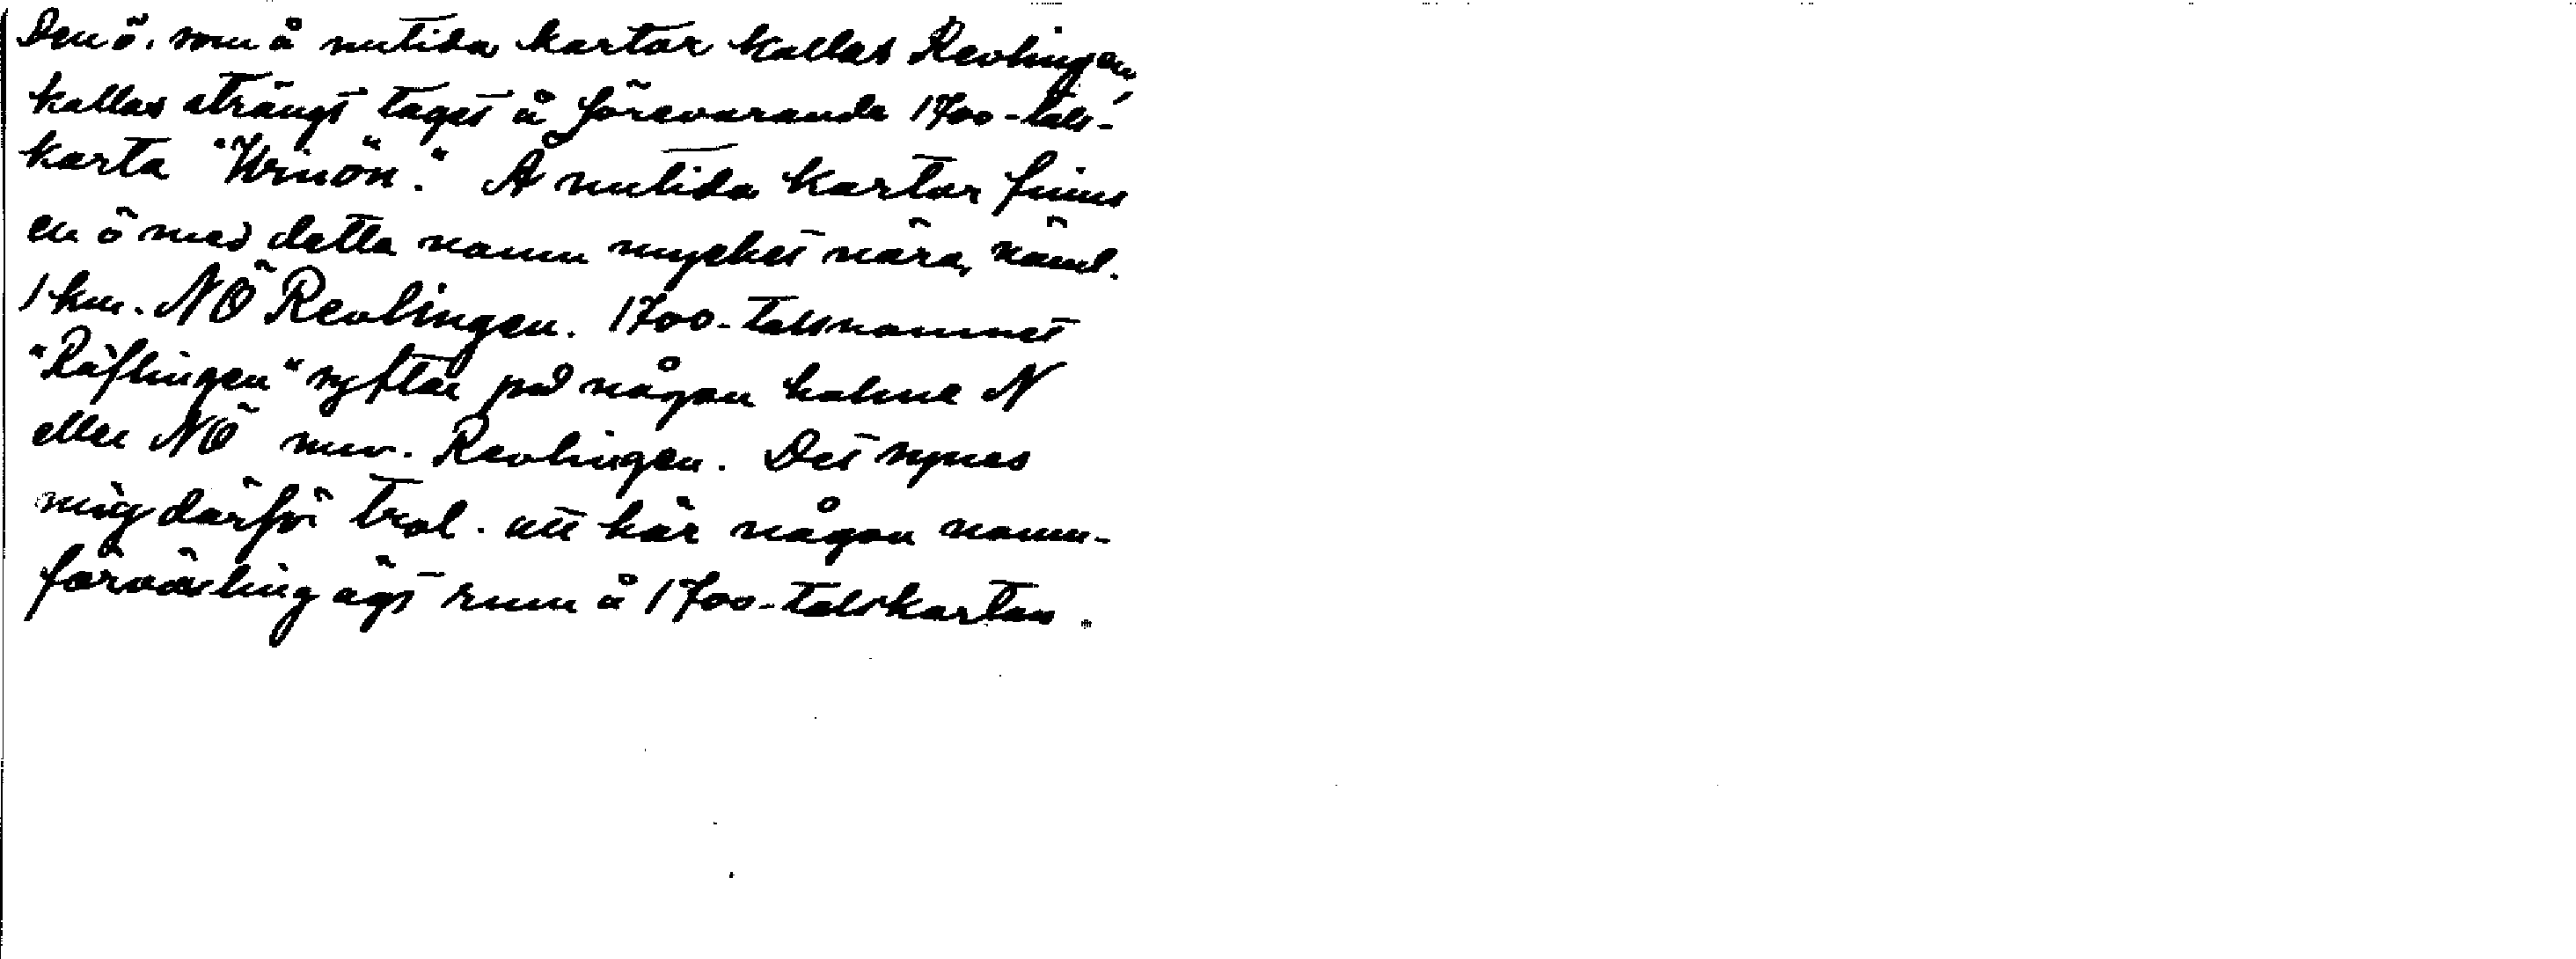 Den ö, som å nutida kartor kallas Revlingen,
kallas strängt taget å förevarande 1700-tals-
karta "Urnön". Å nutida kartor finns
en ö med detta namn mycket nära, näml.
1 km. NÖ Revlingen. 1700-talsnamnet
"Räflingen" syftar på någon holme N
eller NÖ nuv. Revlingen. Det synes
mig därför trol. att här någon namn-
förväxling ägt rum å 1700-talskartan.